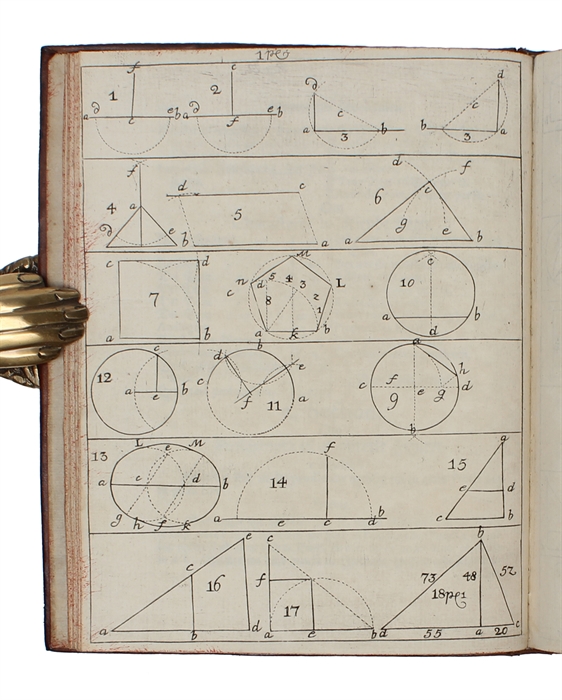 1 pe1
f c ∂ d
1 2 c c
a ∂ c e b a ∂ f e b a 3 b b 3 a
f d c d f
4 a 5 6 c
∂ e b a a g e b
c d n M L c
7 c d 5 4 3 10
8 2 1
a b a k b a d b
12 c d b e a
a e b c f 11 a c f 9 e g d h
b
13 L e M f 15 a
a c d b 14 e d
g h f k a e c d b c b
e c b
c 16 f 73 48 52
17 18 pe1
a b d a e b d 55 a 20 c